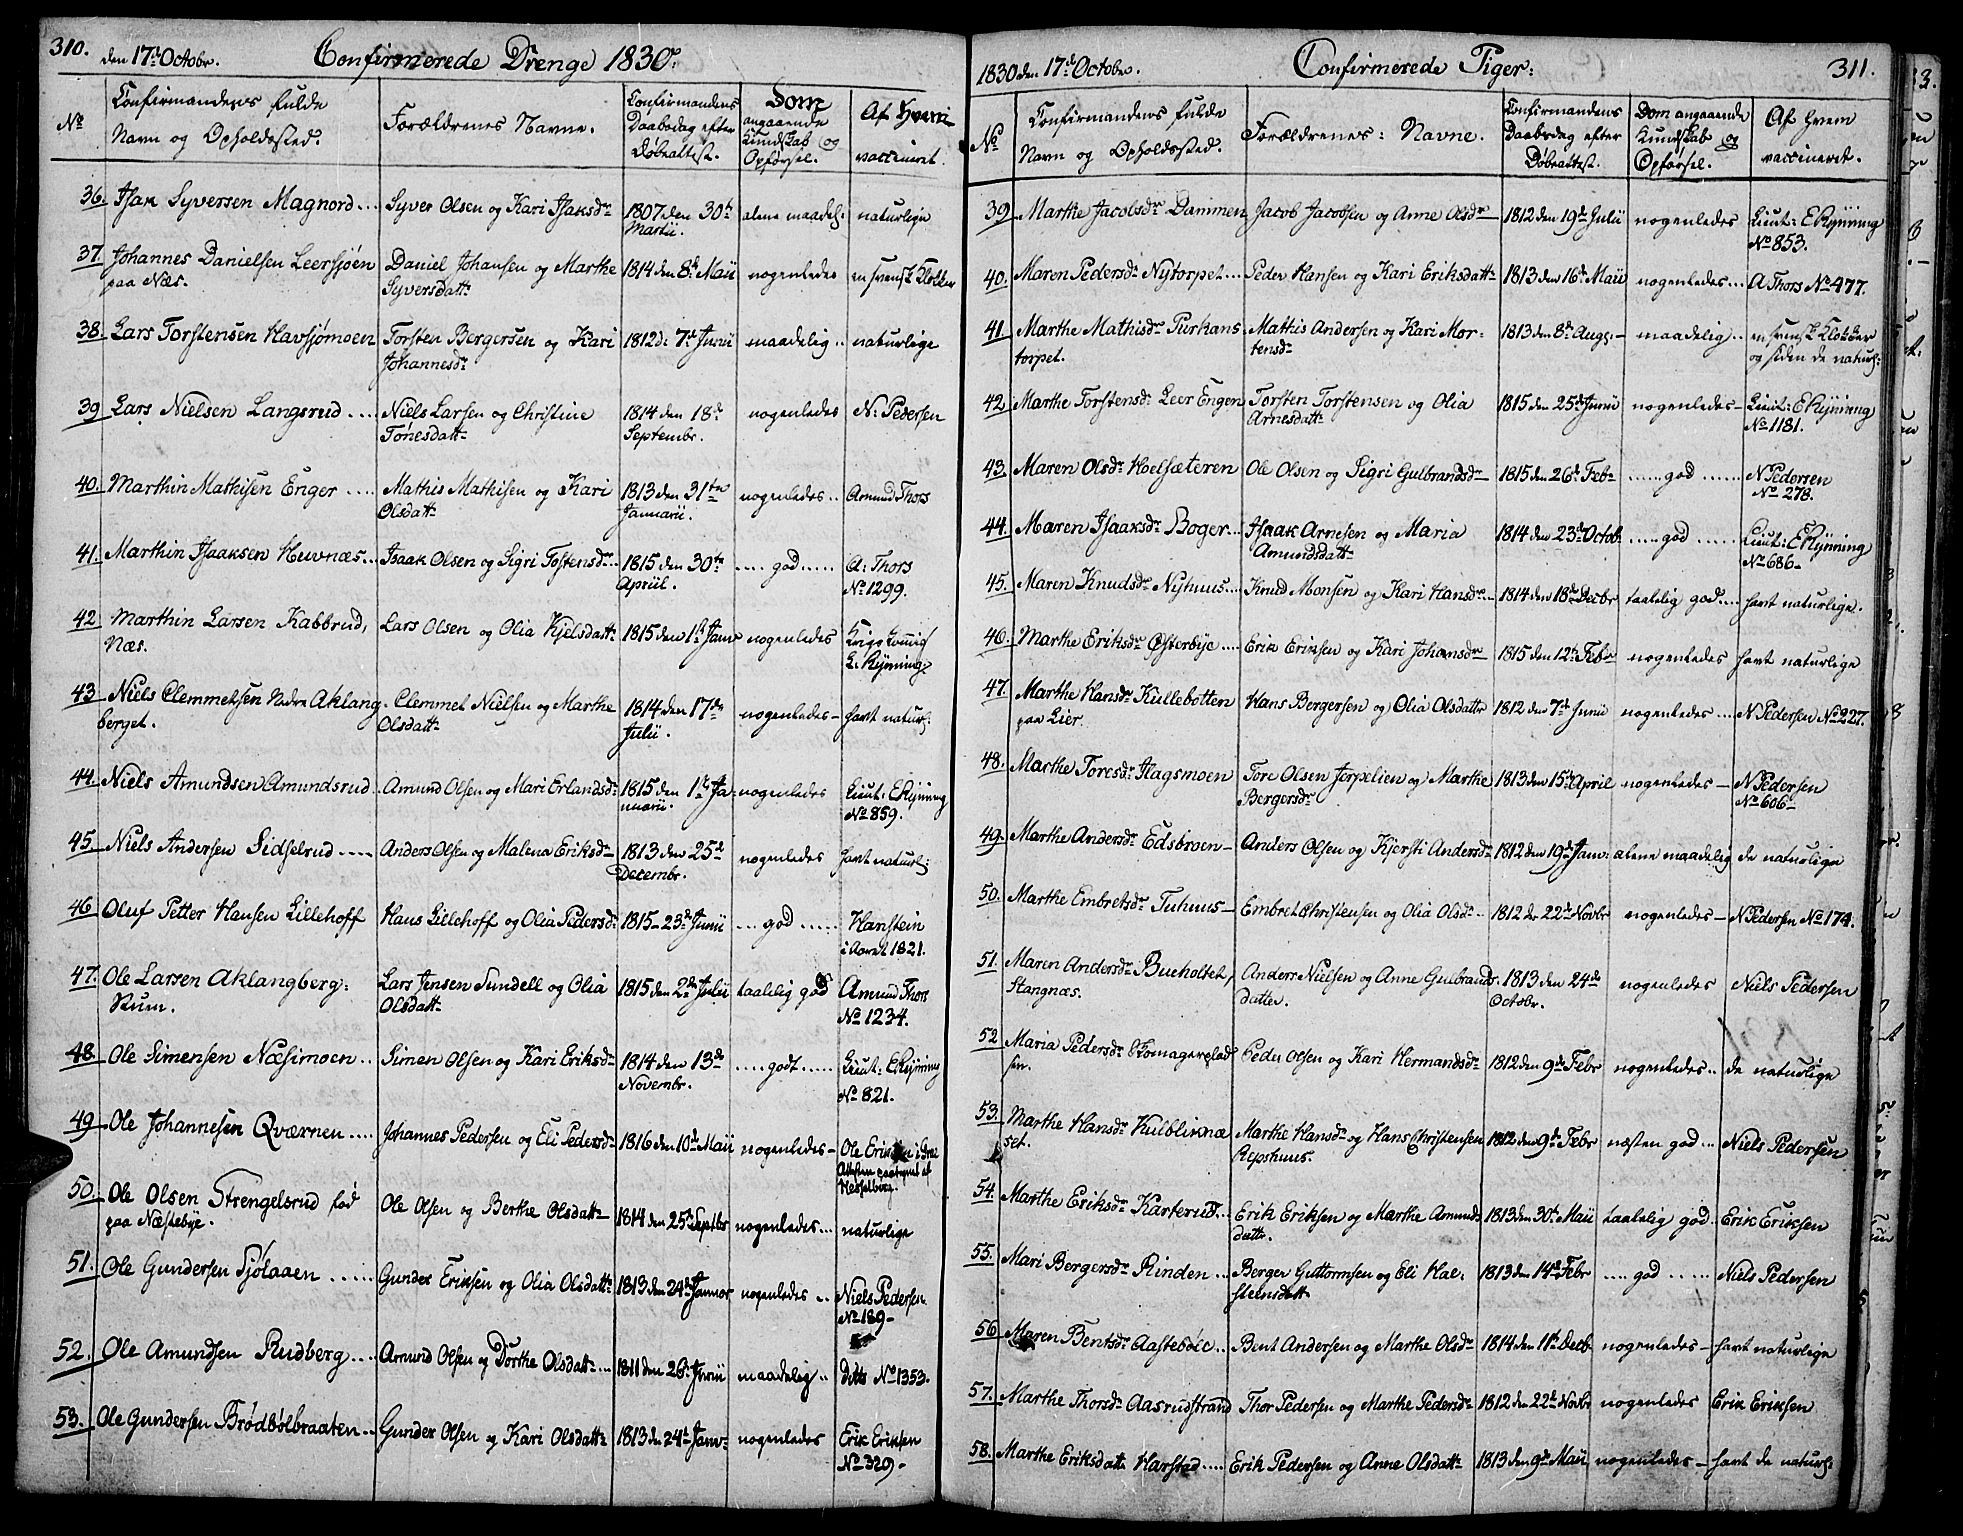 310.
den 17de Octobr.
Confirmerede Drenge 1830.
No
Confirmandens fulde Navn og Opholdssted.
Forældrenes Navne.
Confirmandens Daabsdag efter Døbeattest.
Dom angaaende Kundskab og Opførsel.
Af hvem vaccineret.
36. Isak Syversen Magnord... Syver Olsen og Kari Isaksdr 1807 den 30te Martii. alene maadel: naturlige
37. Johannes Danielsen Leersjøen paa Næs. Daniel Johansen og Marthe Syversdatt 1814 den 8de Maii nogenledes en svensk Klokker
38. Lars Torstensen Havsjømoen Torsten Bergersen og Kari Johannesdr 1812 d: 7de Junii maadelig.. naturlige
39 Lars Nielsen Langsrud.... Niels Larsen og Christine Tønesdatt 1814 den 18de Septembr. nogenledes N: Pedersen
40. Marthin Mathisen Enger.... Mathis Mathisen og Kari Olsdatt 1813 den 31te Januarii. nogenledes.. Amund Thors
41. Marthin Isaaksen Huvnæs... Isaak Olsen og Sigri Tostensdr... 1815 den 30te Apriil. .... god..... A: Thors No 1299.
42. Marthin Larsen Kabbrud, Næs. Lars Olsen og Olia Kjelsdatt 1815 den 1ste Janr nogenledes E. Rynning.
43 Niels Clemmetsen Nedre Aklangberget. Clemmet Nielsen og Marthe Olsdatt 1814 den 17de Julii. nogenledes- havt naturl:
44. Niels Amundsen Amundsrud Amund Olsen og Mari Erlandsdr 1815 den 1ste Januarii. nogenledes Lieut: E Rynning No 859.
45. Niels Andersen Sidselrud.... Anders Olsen og Malena Eriksdr 1813 den 25de Decembr. nogenledes havt naturl:
46 Oluf Petter Hansen Lillehoff Hans Lillehoff og Olia Pedersdr 1815- 23de Junii ... god..... Hanstein i Aaret 1821.
47. Ole Larsen Aklangberg: Rum. Lars Jensen Sundell og Olia Olsdatt 1815 den 2den Julii taalelig god Amund Thors No 1234.
48 Ole Simensen Næsimoen.. Simen Olsen og Kari Eriksdr 1814 den 13de Novembr. .... godt..... Lieut: E Rynning No 821.
49 Ole Johannesen Qværnen..... Johannes Pedersen og Eli Pedersdr 1816 den 10de Maii nogenledes- Ole Eriksen i
50. Ole Olsen Strengelsrud fød paa Næstebye. Ole Olsen og Berthe Olsdatt 1814 den 25de Septbr nogenledes... naturlige
51. Ole Gundersen Sjölaaen...... Gunder Eriksen og Olia Olsdatt 1813 den 24de Januar nogenledes.. Niels Pedersen No 189-
52. Ole Amundsen Rudberg.... Amund Olsen og Dorthe Olsdatt... 1811 den 26de Junii maadelig.. ditto No 1353.
53. Ole Gundersen Brödbölbraaten.. Gunder Olsen og Kari Olsdatt 1813 den 24de Janv- nogenledes Erik Eriksen No 329-
1830 den 17de Octobr.
Confirmerede Piger:
311.
No
Confirmandens fulde Navn og Opholdssted.
Forældrenes: Navne.
Confirmandens Daabsdag efter Døbeattest.
Dom angaaende Kundskab og Opførsel.
Af hvem vaccineret.
39 Marthe Jacobsdr Dammen Jacob Jacobsen og Anne Olsdr 1812 den 19de Julii nogenledes Lieut: E Rynning No 853.
40. Maren Pedersdr Nytorpet... Peder Hansen og Kari Eriksdatt 1813 den 16de Maii nogenledes... A Thors No 477.
41. Marthe Mathisdr Purkanstorpet. Mathis Andersen og Kari Mortensdr 1813 den 8de Aug: maadelig.. en svensk Klokker og siden de naturl:
42 Marthe Torstensdr Leer Engen Torsten Torstensen og Olia Arnesdatt 1815 den 25de Junii nogenledes- Lieut: E Rynning No 1181.
43. Maren Olsdr Hoelsæteren Ole Olsen og Sigri Gulbrandsdr 1815 den 26de Febr ..... god ...... N Pedersen No 278.
44. Maren Isaaksdr Boger... Isaak Arnesen og Maria Amundsdatt 1814 den 23de Octob: ..... god ...... Lieut: E Rynning No 686-
45. Maren Knudsdr Nyhuus.... Knud Monsen og Kari Hansdr... 1814 den 18de Decbr taalelig god.... havt naturlige.
46. Marthe Eriksdr Østerbye.... Erik Eriksen og Kari Johansdr 1815 den 12te Febr nogenledes havt naturlige
47. Marthe Hansdr Kullebotten paa Lier. Hans Bergersen og Olia Olsdattr 1812 den 7de Junii nogenledes... N Pedersen No 227.
48. Marthe Toresdr Hagsmoen Tore Olsen Torpelien og Marthe Bergersdr 1813 den 15de April nogenledes- N Pedersen No 606-
49. Marthe Andersdr Edsbroen- Anders Olsen og Kjersti Andersdr 1812 den 19de Janv: alene maadelig de naturlige
50. Marthe Embretsdr Tuhuus- Embret Christensen og Olia Olsdr.. 1812 de 22de Novbr nogenledes- N Pedersen No 174.
51. Maren Andersdr Bueholtet, Stangnæs. Anders Nielsen og Anne Gulbrandsdatter. 1813 den 24de Octobr. nogenledes Niels Pedersen
52 Maria Pedersdr Peder Olsen og Kari Hermandsdr 1812 den 9de Febr nogenledes.. de naturlige
53. Marthe Hansdr Kulbliknæset. Marthe Hansdr og Hans Christensen Repshuus. 1812 den 9de Febr næsten god... Niels Pedersen
54. Marthe Eriksdr Karterud... Erik Eriksen og Marthe Amundsdattr. 1813 den 30te Maii taalelig god.. Erik Eriksen
55. Mari Bergersdr Rinden... Berger Guttormsen og Eli Halsteensdatt 1813 den 14de Febr .... god ..... Niels Pedersen
56 Maren Bentsdr Aastebøle.. Bent Andersen og Marthe Olsdr 1814 den 11te Decb nogenledes- havt naturlige
57. Marthe Thorsdr Aasrudstrand Thor Pedersen og Marthe Pedersdr 1812 den 22de Novbr nogenledes Erik Eriksen
58. Marthe Eriksdatt Harstad.... Erik Pedersen og Anne Olsdatt 1813 den 9de Maii nogenledes- havt de naturl: